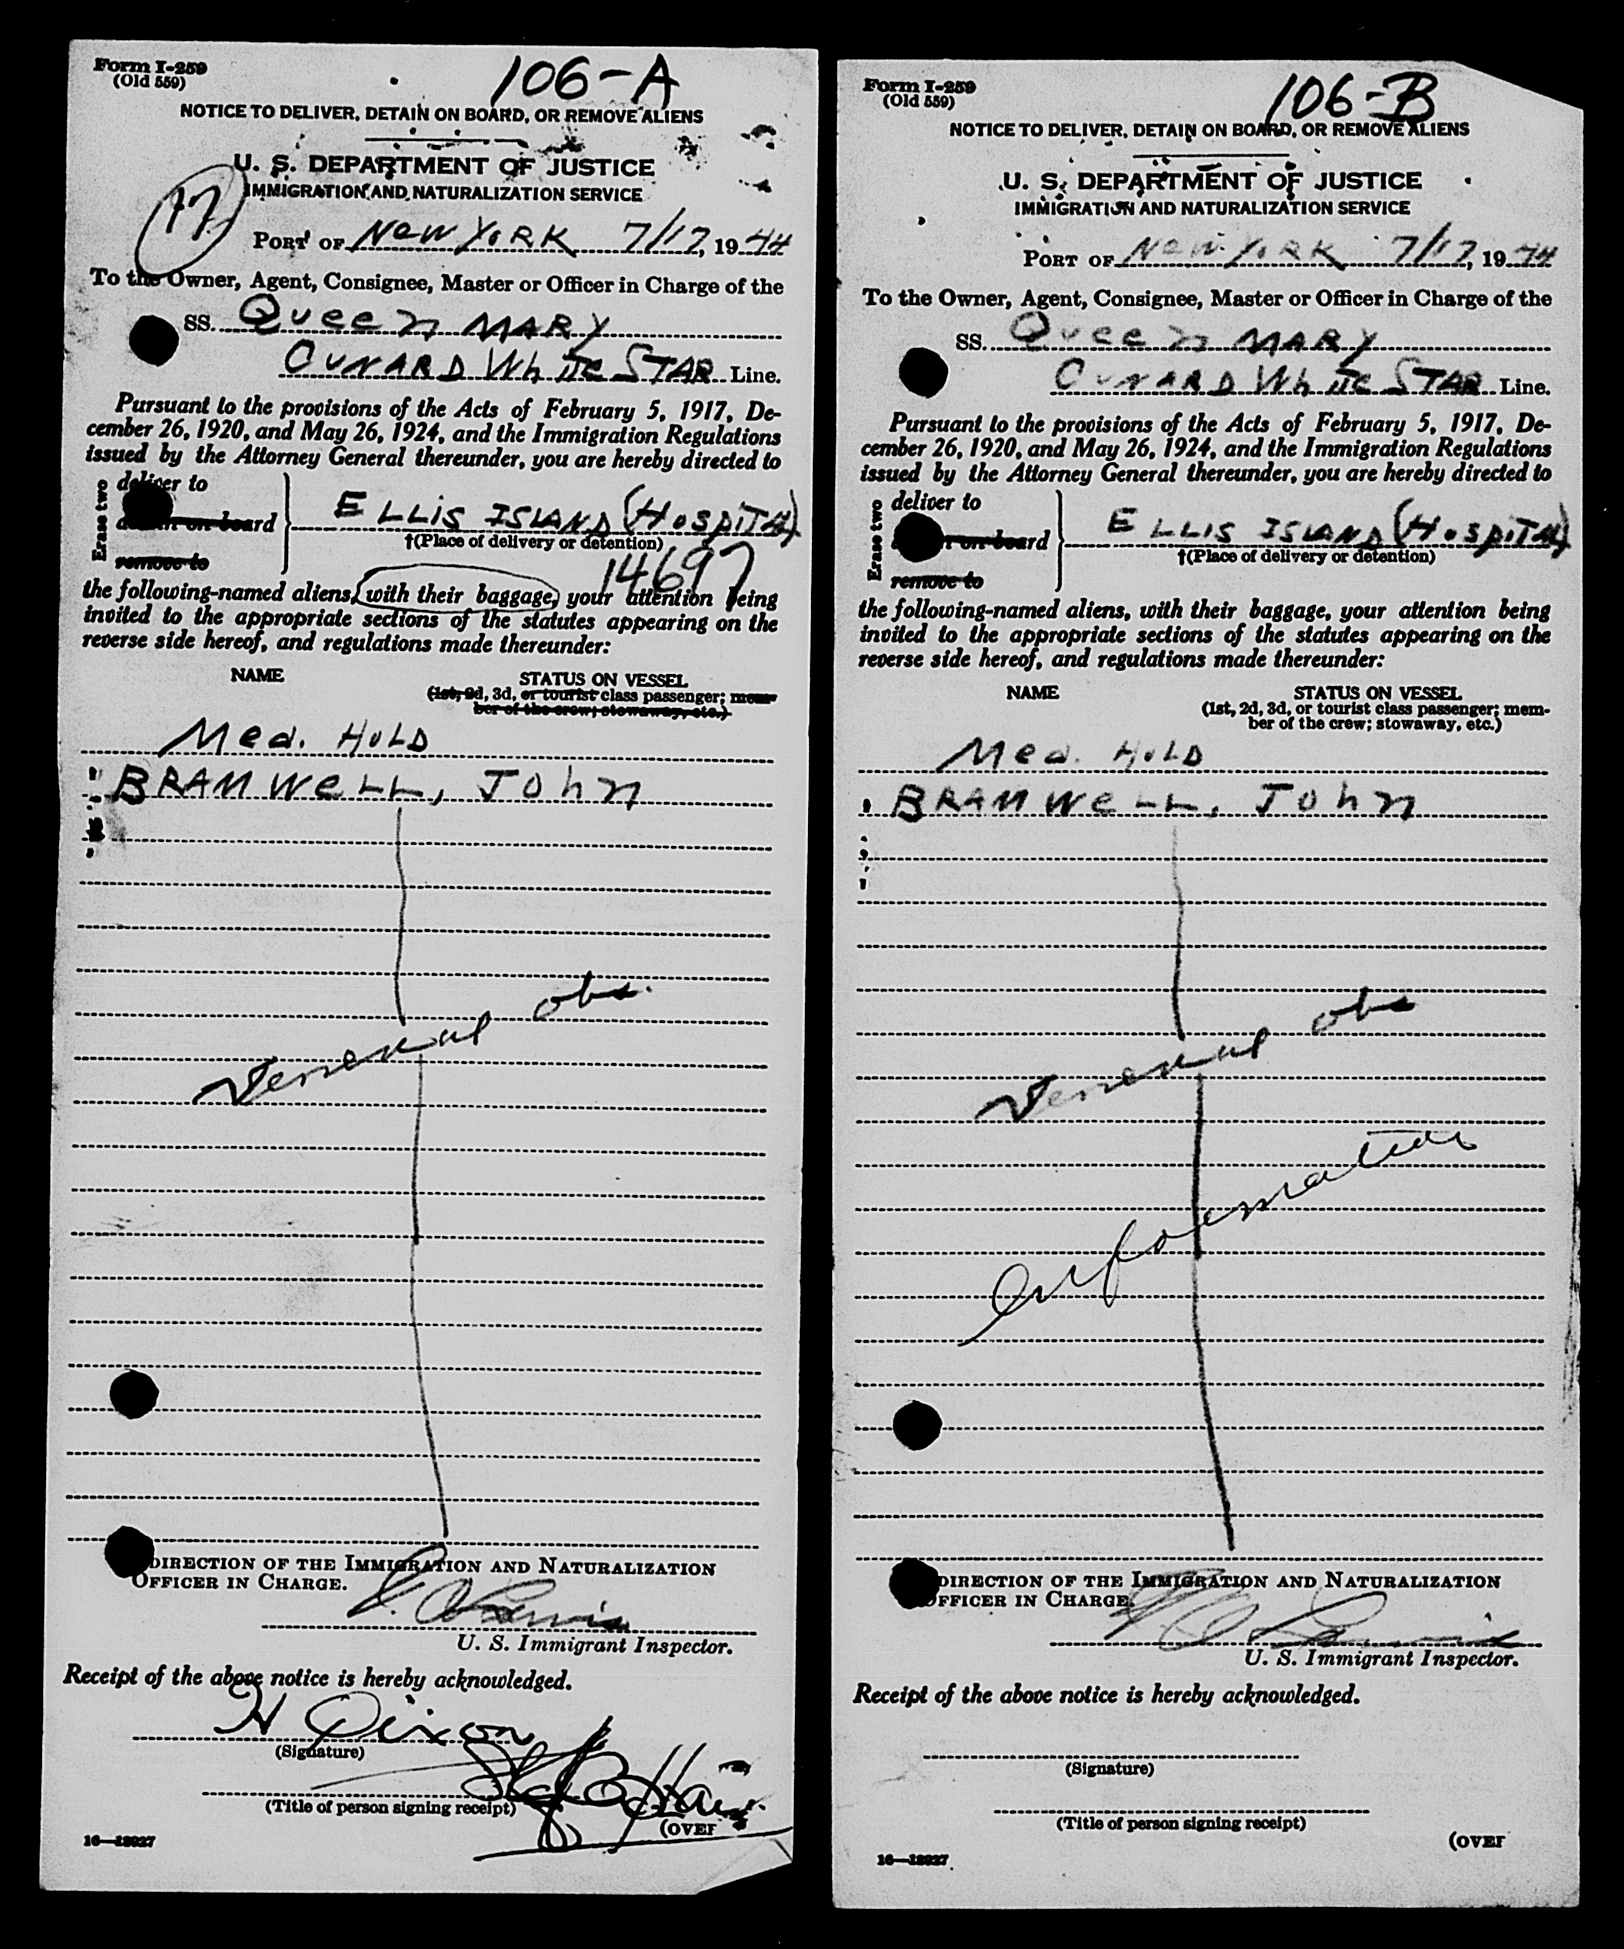 Form I-259
(Old 559)
106-A
NOTICE TO DELIVER, DETAIN ON BOARD, OR REMOVE ALIENS
U. S. DEPARTMENT OF JUSTICE
IMMIGRATION AND NATURALIZATION SERVICE
17
PORT OF NEW YORK 7/17, 1944
To the Owner, Agent, Consignee, Master or Officer in Charge of the
SS. QUEEN MARY
CUNARD White STAR Line.
Pursuant to the provisions of the Acts of February 5, 1917, De-
cember 26, 1920, and May 26, 1924, and the Immigration Regulations
issued by the Attorney General thereunder, you are hereby directed to
Erase two
deliver to
detain on board
remove to
ELLIS ISLAND (HOSPITAL)
†(Place of delivery or detention)
14697
the following-named aliens, with their baggage, your attention being
invited to the appropriate sections of the statutes appearing on the
reverse side hereof, and regulations made thereunder:
NAME
STATUS ON VESSEL
(1st, 2d, 3d, or tourist class passenger; mem-
ber of the crew; stowaway, etc.)
Med. HOLD
BRAMWELL, JOhn
Venereal obs.
DIRECTION OF THE IMMIGRATION AND NATURALIZATION
OFFICER IN CHARGE.
U. S. Immigrant Inspector.
Receipt of the above notice is hereby acknowledged.
H Dixon
(Signature)
(Title of person signing receipt)
(OVER
16—18927
Form I-259
(Old 559)
106-B
NOTICE TO DELIVER, DETAIN ON BOARD, OR REMOVE ALIENS
U. S. DEPARTMENT OF JUSTICE
IMMIGRATION AND NATURALIZATION SERVICE
PORT OF NEW YORK 7/17, 1944
To the Owner, Agent, Consignee, Master or Officer in Charge of the
SS. QUEEN MARY
CUNARD White STAR Line.
Pursuant to the provisions of the Acts of February 5, 1917, De-
cember 26, 1920, and May 26, 1924, and the Immigration Regulations
issued by the Attorney General thereunder, you are hereby directed to
Erase two
deliver to
detain on board
remove to
ELLIS ISLAND (HOSPITAL)
†(Place of delivery or detention)
the following-named aliens, with their baggage, your attention being
invited to the appropriate sections of the statutes appearing on the
reverse side hereof, and regulations made thereunder:
NAME
STATUS ON VESSEL
(1st, 2d, 3d, or tourist class passenger; mem-
ber of the crew; stowaway, etc.)
Med. HOLD
BRAMWELL, JOhn
Venereal obs
Information
DIRECTION OF THE IMMIGRATION AND NATURALIZATION
OFFICER IN CHARGE.
U. S. Immigrant Inspector.
Receipt of the above notice is hereby acknowledged.
(Signature)
(Title of person signing receipt)
(OVER
16—18927